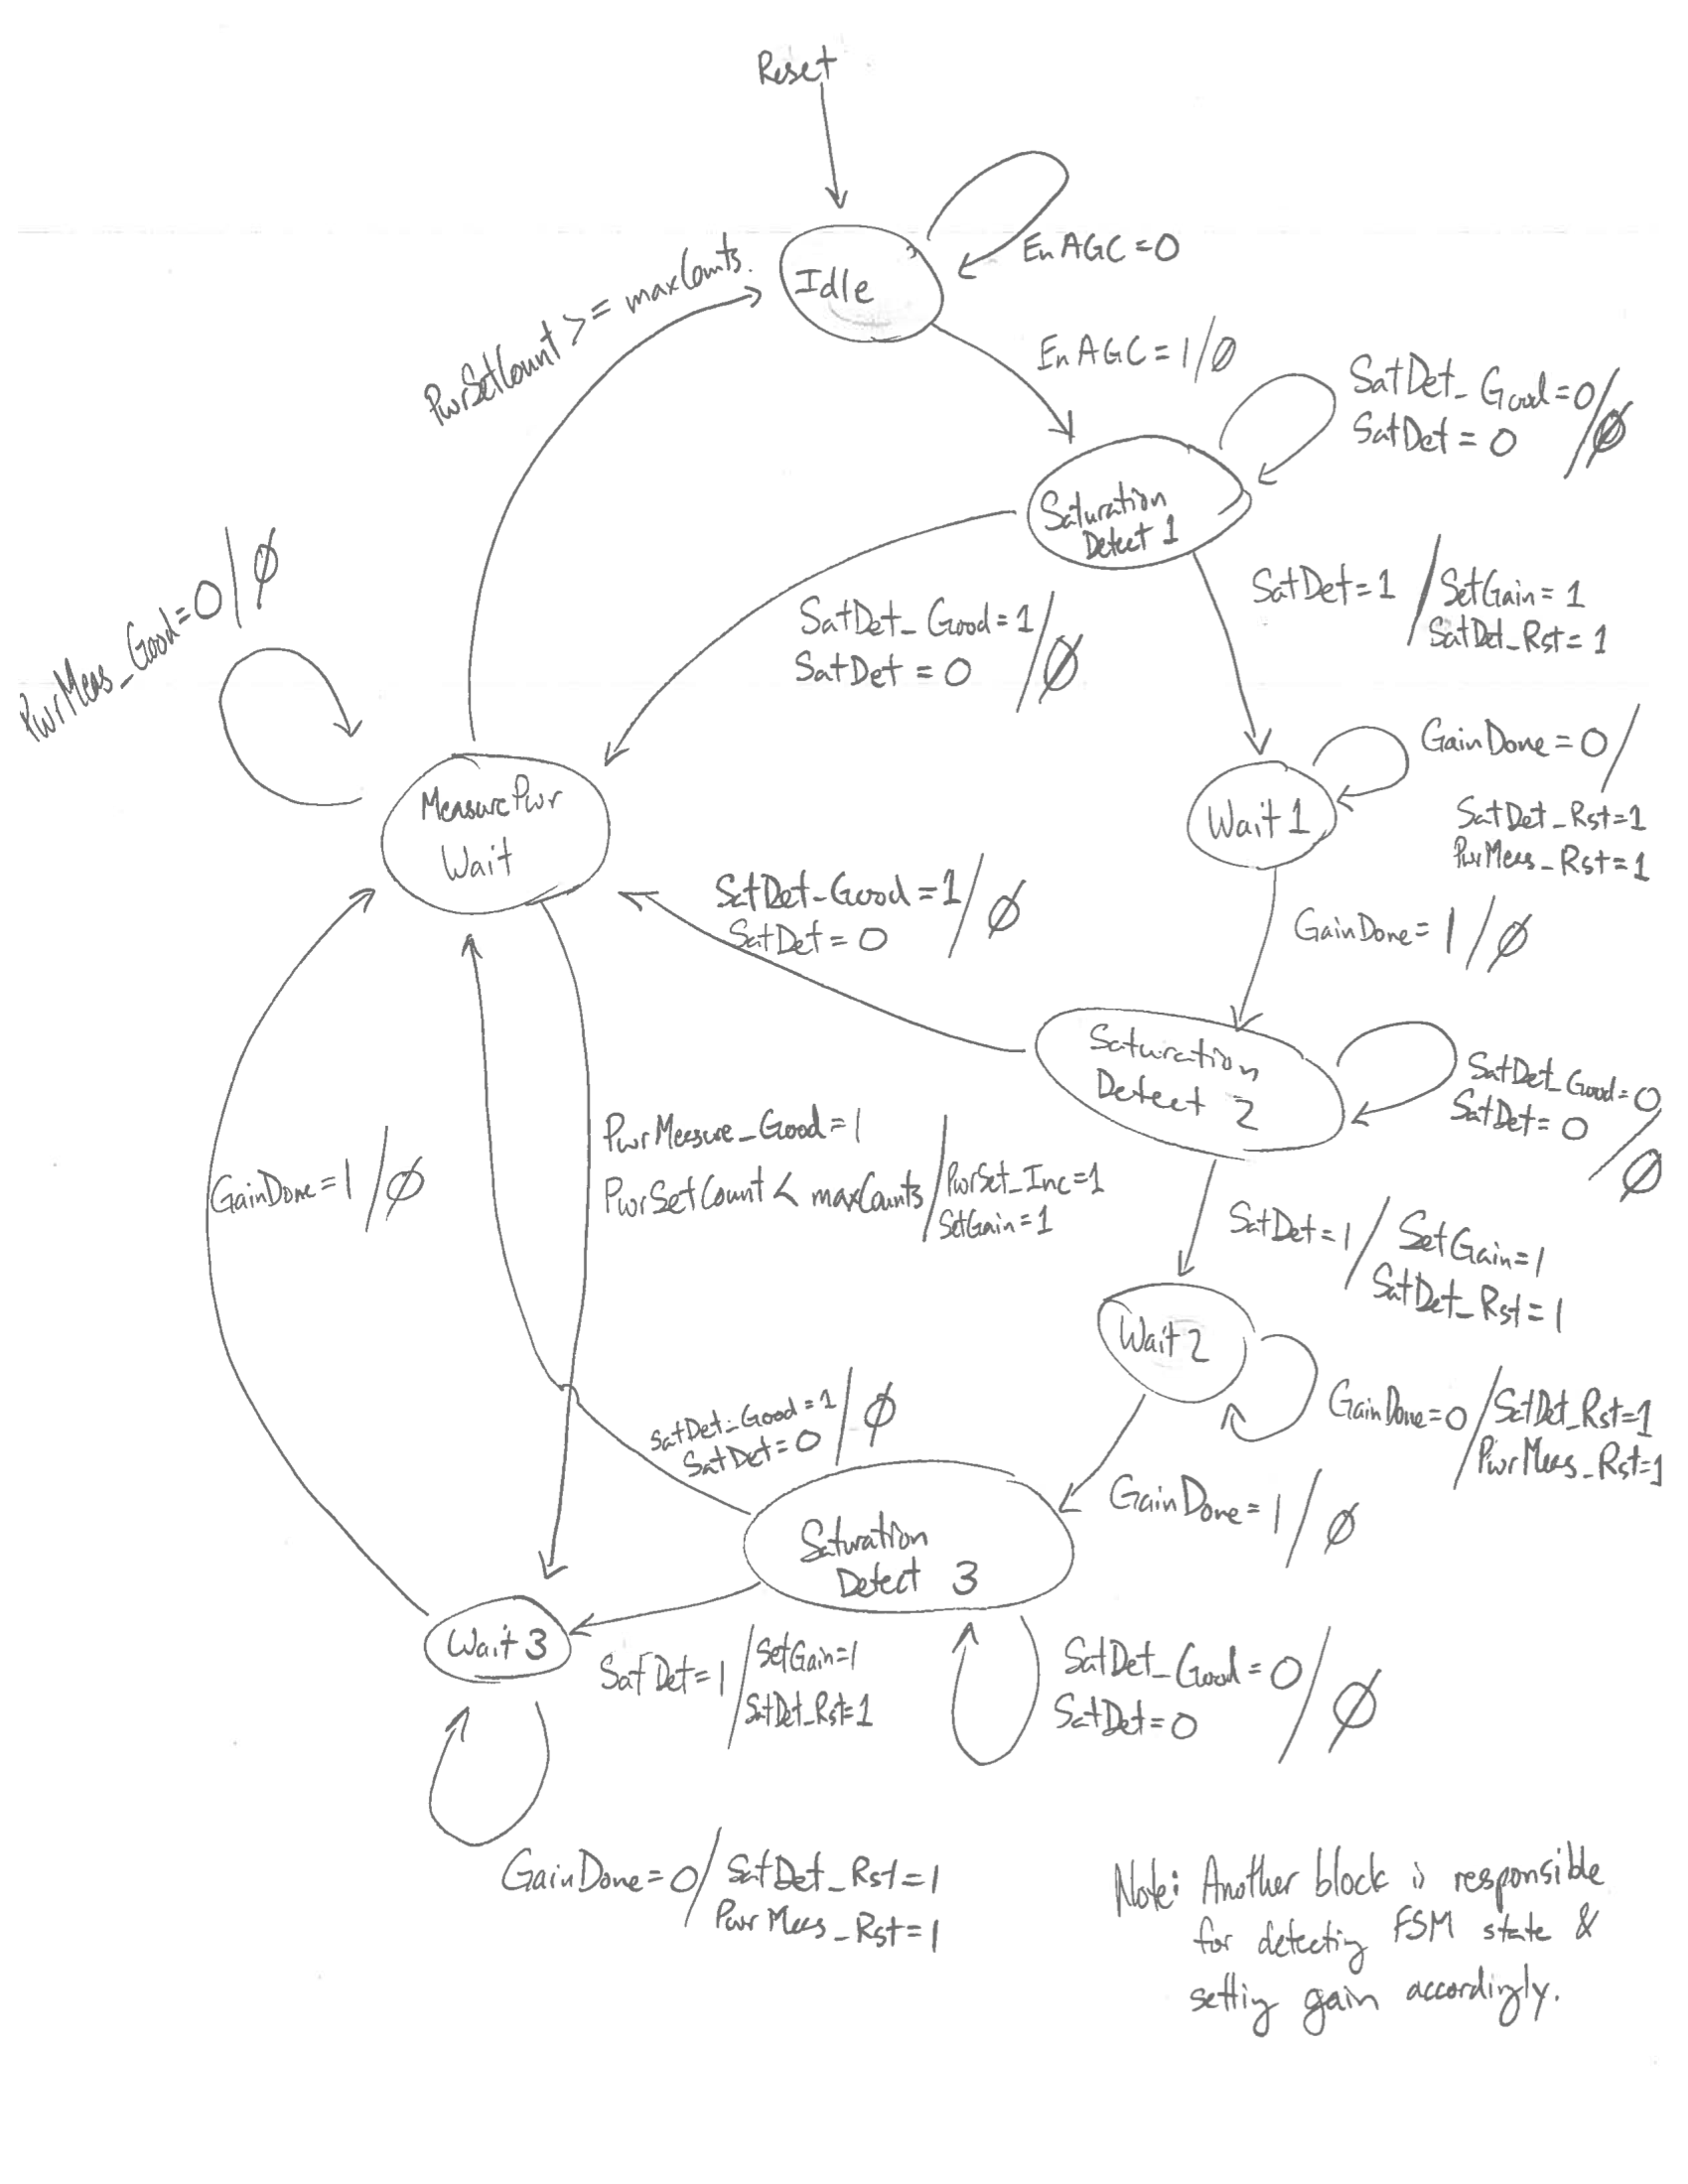 Reset
Idle
EnAGC=0
PwrSetCount >= maxCounts.
EnAGC=1/∅
SatDet_Good=0/∅
SatDet=0
Saturation
Detect 1
SatDet=1 / SetGain=1
SatDet_Rst=1
SatDet_Good=1/∅
SatDet=0
PwrMeas_Good=0/∅
MeasurePwr
Wait
Wait 1
GainDone=0/
SatDet_Rst=1
PwrMeas_Rst=1
SatDet_Good=1/∅
SatDet=0
GainDone=1/∅
Saturation
Detect 2
SatDet_Good=0
SatDet=0
/∅
GainDone=1/∅
PwrMeasure_Good=1
PwrSetCount < maxCounts / PwrSet_Inc=1
SetGain=1
SatDet=1 / SetGain=1
SatDet_Rst=1
Wait 2
GainDone=0 / SatDet_Rst=1
PwrMeas_Rst=1
SatDet_Good=1/∅
SatDet=0
GainDone=1/∅
Saturation
Detect 3
Wait 3
SatDet=1 / SetGain=1
SatDet_Rst=1
SatDet_Good=0/∅
SatDet=0
GainDone=0 / SatDet_Rst=1
PwrMeas_Rst=1
Note: Another block is responsible
for detecting FSM state &
setting gain accordingly.